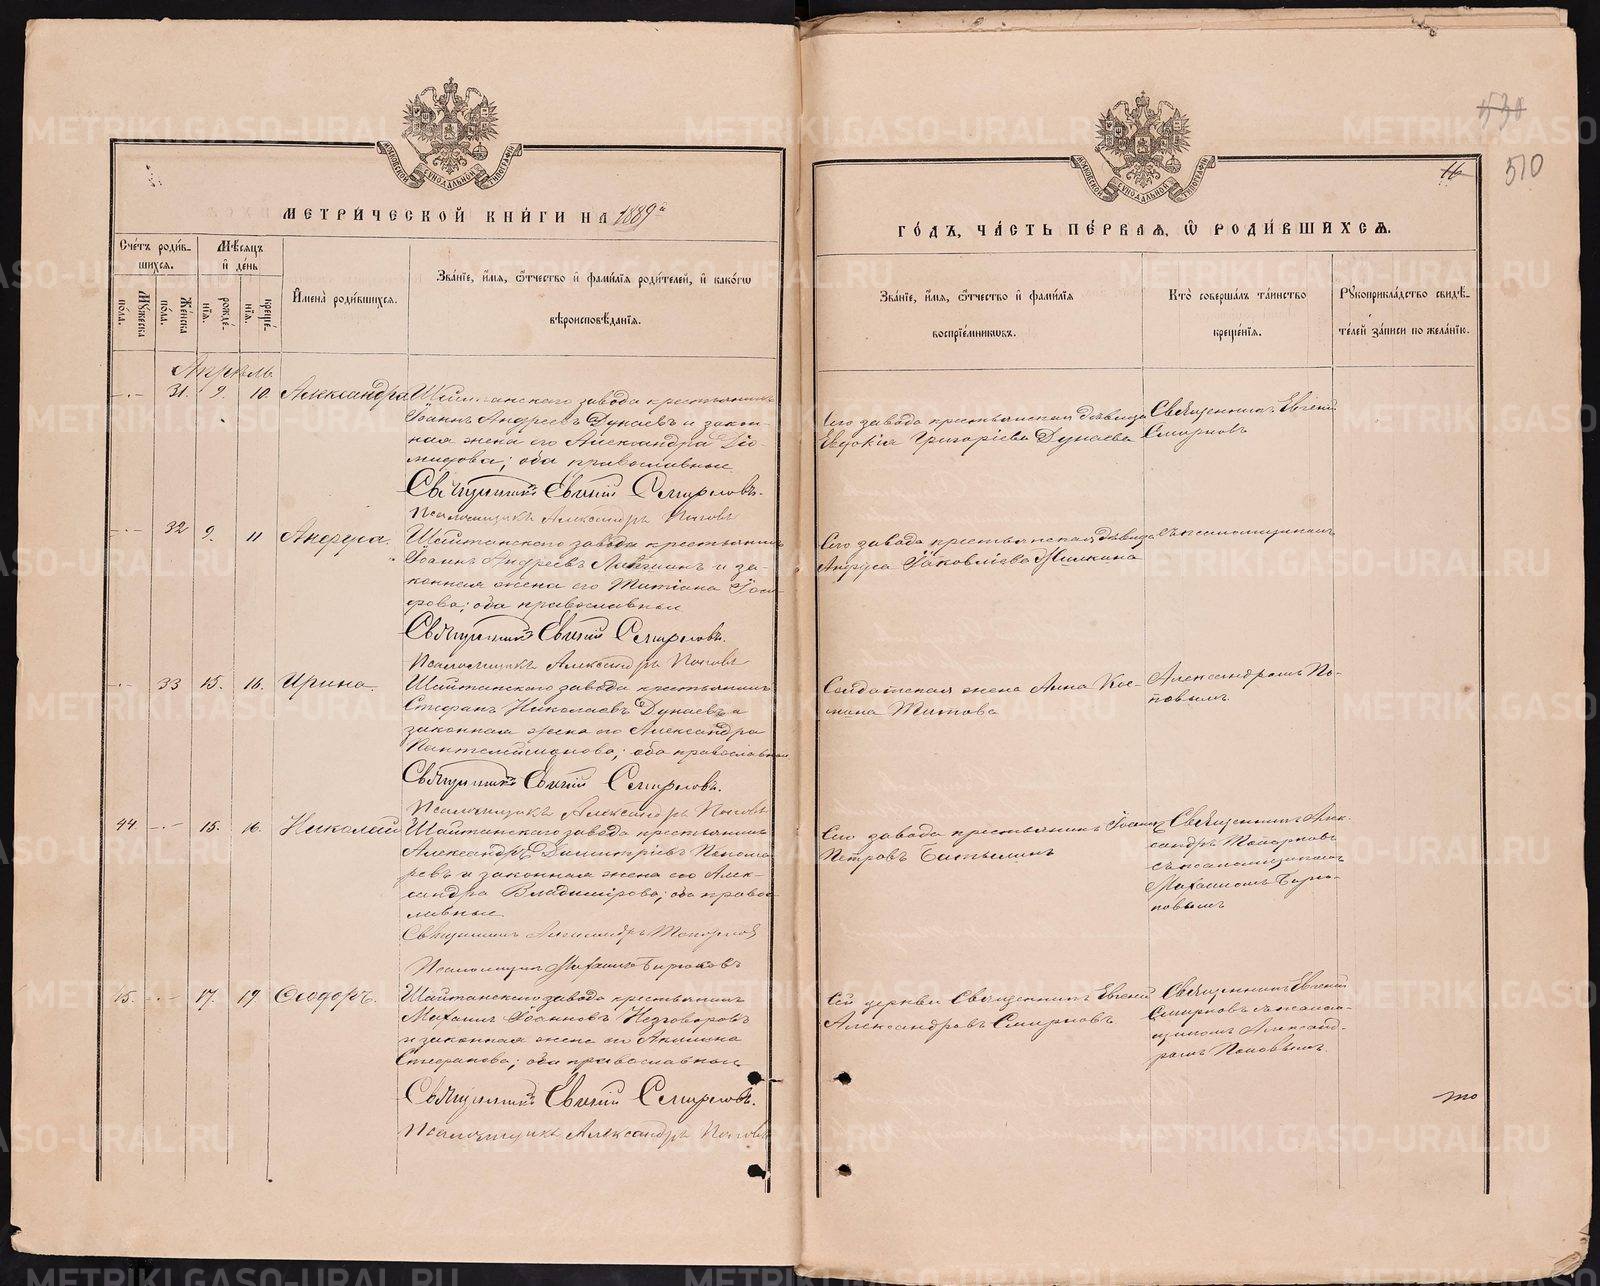 530
510
16
МОСКОВСКОЙ СѴНОДАЛЬНОЙ ТИПОГРАФІИ
МЕТРИЧЕСКОЙ КНИГИ НА 1889й
Счетъ родившихся.
Мѣсяцъ и день
Мужеска пола.
Женска пола.
рожденія.
крещенія.
Имена родившихся.
Званіе, имя, отчество и фамилія родителей, и какого
вѣроисповѣданія.
Апрѣль
31. 9. 10. Александра
Шайтанскаго завода крестьянинъ
Іоаннъ Андреевъ Дунаевъ и закон-
ная жена его Александра Діо-
мидова; оба православные
Священникъ Евгеній Смирновъ.
Псаломщикъ Александръ Поповъ
32 9. 11 Анфуса.
Шайтанскаго завода крестьянинъ
Іоаннъ Андреевъ и за-
конная жена его Татіана Іоси-
фова; оба православные
Священникъ Евгеній Смирновъ.
Псаломщикъ Александръ Поповъ
33 15. 16. Ирина.
Шайтанскаго завода крестьянинъ
Стефанъ Николаевъ Дунаевъ и
законная жена его Александра
Пантелеимонова; оба православные
Священникъ Евгеній Смирновъ.
Псаломщикъ Александръ Поповъ
44. 15. 16. Николай
Шайтанскаго завода крестьянинъ
Александръ Димитріевъ Понома-
ревъ и законная жена его Алек-
сандра Владимірова; оба право-
славные
Священникъ Александръ Топорковъ
Псаломщикъ Михаилъ Бирюковъ
45. 17. 19 Ѳеодоръ.
Шайтанскаго завода крестьянинъ
Михаилъ Іоанновъ Незговоровъ
и законная жена его Акилина
Стефанова; оба православные
Священникъ Евгеній Смирновъ.
Псаломщикъ Александръ Поповъ
МОСКОВСКОЙ СѴНОДАЛЬНОЙ ТИПОГРАФІИ
ГОДЪ, ЧАСТЬ ПЕРВАЯ, Ѡ РОДИВШИХСЯ.
Званіе, имя, отчество и фамилія
воспріемниковъ.
Кто совершалъ таинство
крещенія.
Рукоприкладство свидѣ-
телей записи по желанію.
Сего завода крестьянская дѣвица
Евдокія Григоріева Дунаева
Священникъ Евгеній
Смирновъ
Сего завода крестьянская дѣвица
Анфуса Іаковлева
съ псаломщикомъ
Солдатская жена Анна Кос-
мина Титова
Александромъ По-
повымъ.
Сего завода крестьянинъ Іоаннъ
Петровъ
Священникъ Алек-
сандръ Топорковъ
съ псаломщикомъ
Михаиломъ Бирю-
ковымъ
Сей церкви Священникъ Евгеній
Александровъ Смирновъ
Священникъ Евгеній
Смирновъ съ псалом-
щикомъ Александ-
ромъ Поповымъ.
METRIKI.GASO-URAL.RU